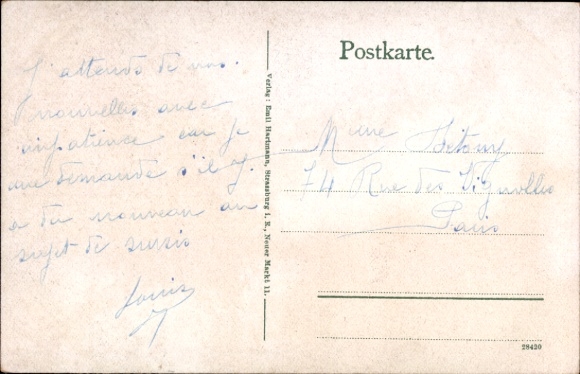 J'attends de vos
nouvelles avec
impatience car je
me demande s'il y
a du nouveau au
sujet de sursis
Louis
Verlag: Emil Hartmann, Strassburg i. E., Neuer Markt 11.
Postkarte.
Mme
74 Rue des Vignolles
Paris
28420